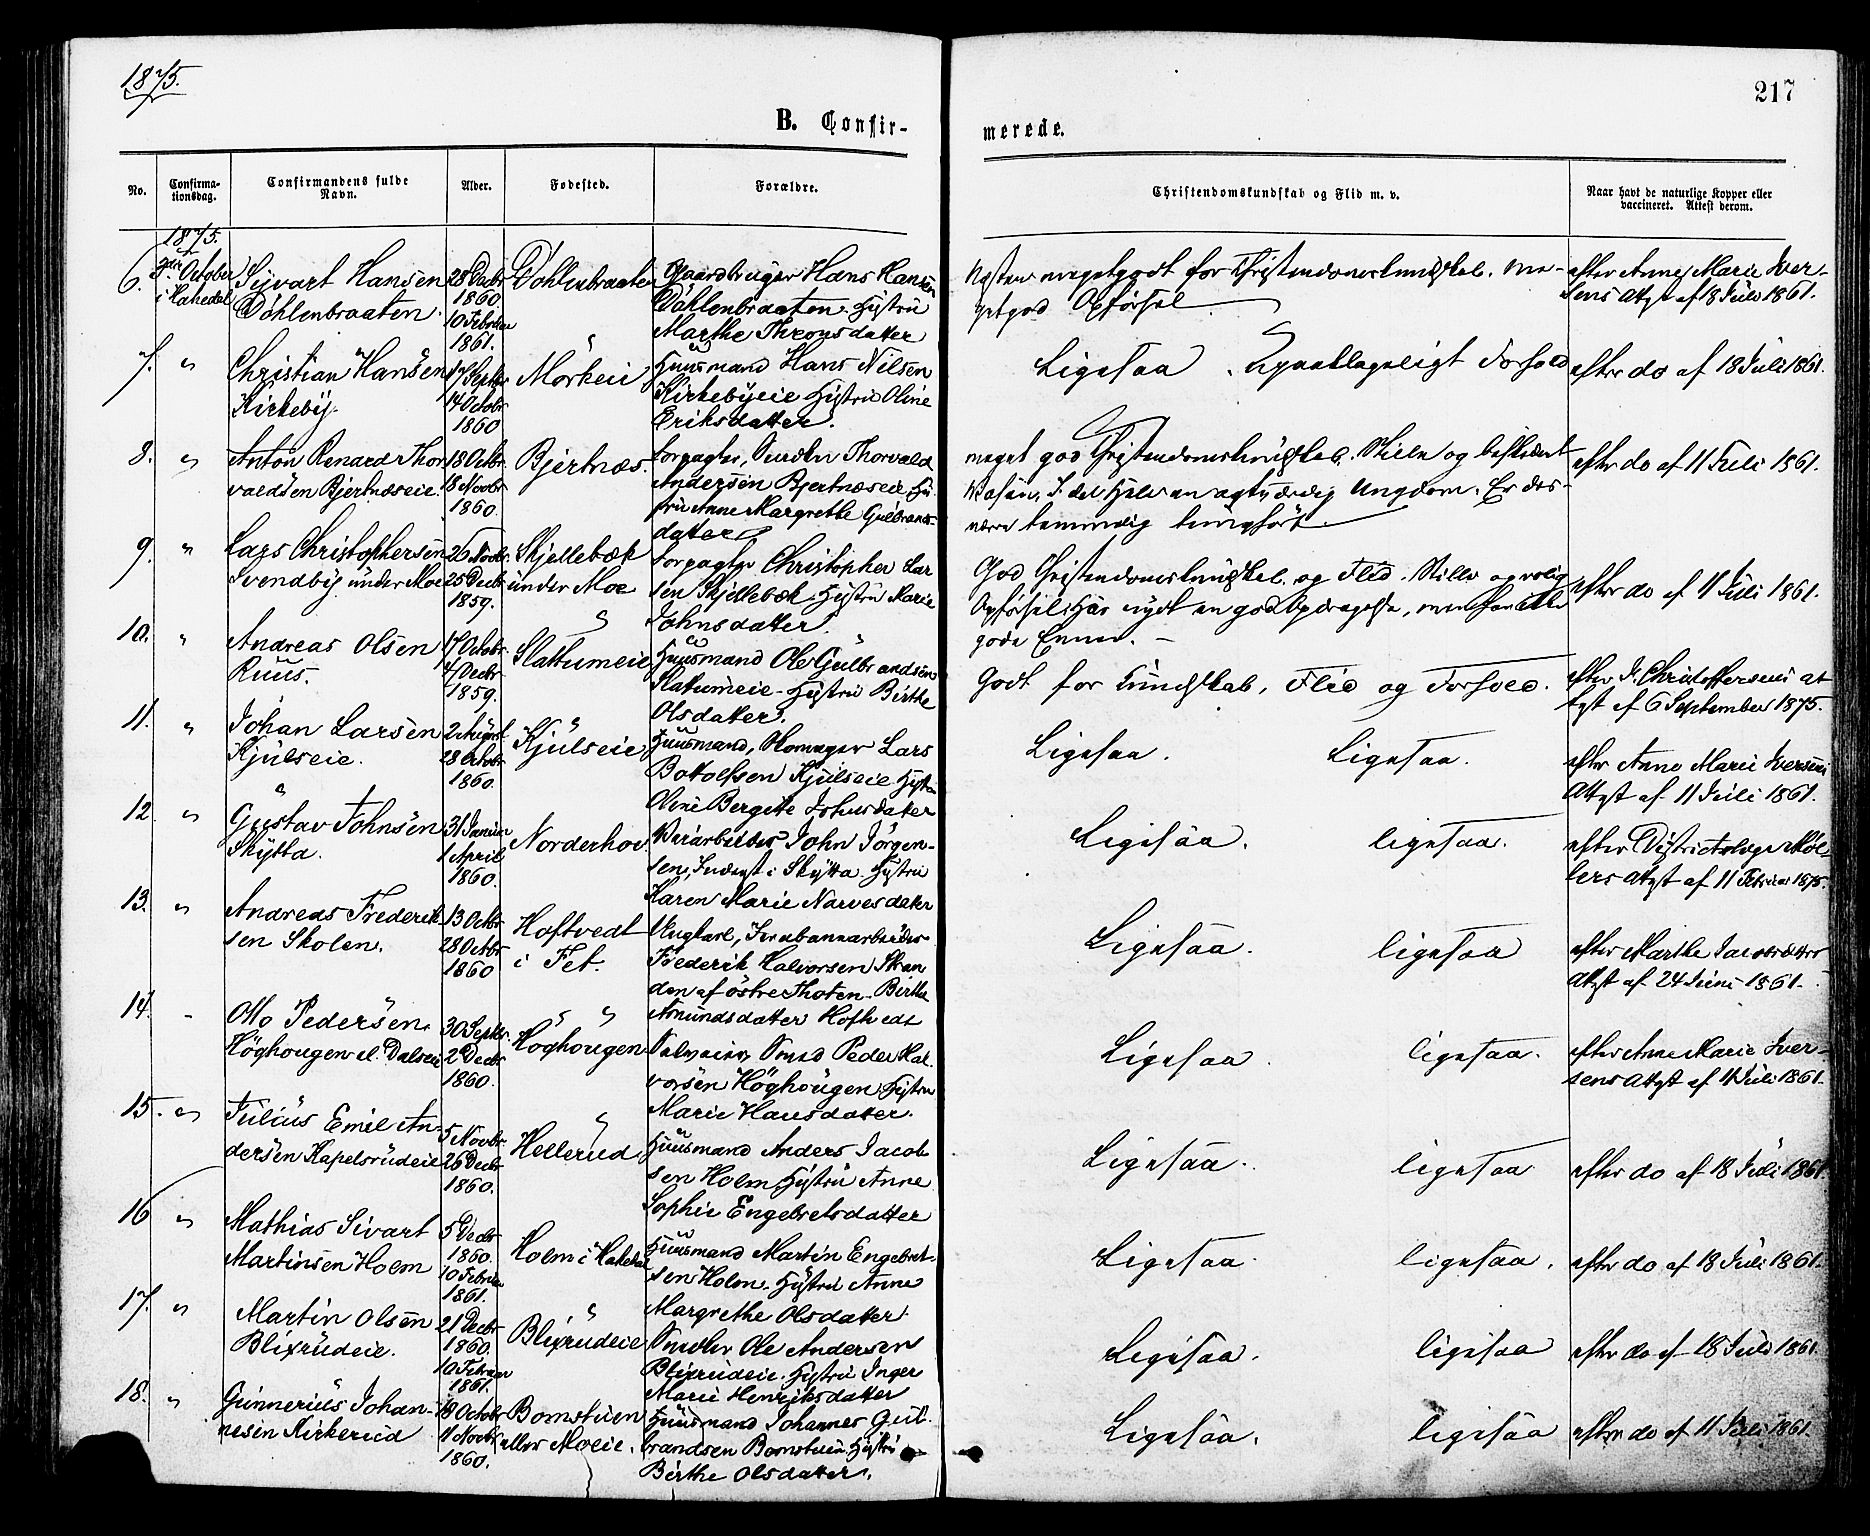 1875.
217
B. Confir-
merede.
No.
Confirma-
tionsdag.
Confirmandens fulde
Navn.
Alder.
Fødested.
Forældre.
Christendomskundskab og Flid m. v.
Naar havt de naturlige Kopper eller
vaccineret. Attest derom.
1875.
6. October
i Hakedal
Syvart Hansen
Döhlenbraaten.
28 Decbr
1860
10 Februar
1861.
Döhlenbraaten
Gaardbruger Hans Hansen
Döhlenbraaten. Hustru
Marthe Thronsdatter
Næsten megetgodt for Christendomskundskab. Me-
getgod Opförsel
efter Anne Marie Iver-
sens Attest af 18 Juli 1861.
7. "
Christian Hansen
Kirkeby.
17 Septbr
14 Octobr
1860
Mörkeie
Huusmand Hans Nilsen
Kirkebyeie Hustru Oline
Eriksdatter.
Ligesaa. Upaaklageligt Forhold
efter do af 18 Juli 1861.
8. "
Anton Renard Thor
valdsen Bjertnæseie.
18 Octbr
18 Novbr
1860.
Bjertnæs.
Forpagter, Thorvald
Andersen Bjertnæseie Hu
stru Anne Margrethe Gulbrands-
datter
meget god Christendomskundskab. Stille og beskedent
Væsen. I det Hele en agtværdig Ungdom. Er des-
værre
efter do af 11 Juli 1861.
9. "
Lars Christophersen
Svendby under Moe
26 Novbr.
25 Decbr
1859.
Skjellebæk
under Moe
Forpagter Christopher Lar
sen Skjellebæk. Hustru Marie
Johnsdatter.
God Christendomskundskab og Flid. Stille og rolig
Opförsel. Har nydt en god Opdragelse, men har ikke
gode Evner.
efter do af 11 Juli 1861.
10. "
Andreas Olsen
Ruus.
17 Octobr.
4 Decbr
1859.
Slattumeie
Huusmand Ole Gulbrandsen
Slattumeie. Hustru Birthe
Olsdatter.
Godt for Kundskab, Flid og Forhold.
efter J. Christoffersens at-
test af 6 September 1875.
11. "
Johan Larsen
Kjulseie.
2 August
28 Octobr
1860.
Kjulseie
Huusmand, Skomager Lars
Bottolfsen Kjulseie Hustru
Oline Bergitte Johnsdatter
Ligesaa. Ligesaa.
efter Anne Marie Iversens
Attest af 11 Juli 1861.
12. "
Gustav Johnsen
Skytta.
31 Januar
1 April
1860.
Norderhov
Veiarbeider John Jörgen-
sen, Inderst i Skytta. Hustru
Karen Marie Narvesdatter
Ligesaa. ligesaa.
efter Districtslæge Möl-
lers Attest af 11 Februar 1875.
13. "
Andreas Frederik
sen Skolen.
13 Octbr
28 Octbr
1860
Hoftvedt
i Fet.
Ungkarl, Jernbanearbeider
Frederik Halvorsen Stran
den af östre Thoten. Birthe
Amundsdatter Hoftvedt
Ligesaa. ligesaa
efter Marthe Jacobsdatters
Attest af 24 Juni 1861.
14. "
Otto Pedersen.
Höghougen el. Dalseie
30 Septbr.
2 Decbr
1860.
Höghougen
Selveier, Smed Peder Hal
vorsen Höghougen Hustru
Marie Hansdatter.
Ligesaa. ligesaa.
efter Anne Marie Iver-
sens Attest af 11 Juli 1861.
15. "
Julius Emil An-
dersen Kapelsrudeie
5 Novbr.
26 Decbr
1860.
Hellerud.
Huusmand Anders Jacob
sen Holm Hustru Anne
Sophie Engebretsdatter
Ligesaa. ligesaa
efter do af 18 Juli 1861.
16 "
Mathias Sivart
Martinsen Holm
5 Decbr
1860.
10 Februar
1861.
Holm i Hakedal
Huusmand Martin Engebret-
sen Holm. Hustru Anne
Margrethe Olsdatter.
Ligesaa. ligesaa.
efter do af 18 Juli 1861.
17. "
Martin Olsen
Blixrudeie.
21 Decbr
1860.
10 Februar
1861.
Blixrudeie
Ole Andersen
Blixrudeie. Hustru Inger
Marie Henriksdatter
Ligesaa. ligesaa
efter do af 18 Juli 1861.
18. "
Gunnerius Johan-
nesen Kirkerud
18 Octobr
11 Novbr
1860.
Bomstuen
eller Moeie.
Huusmand Johannes Gul-
brandsen Bomstuen. Hustru
Birthe Olsdatter.
Ligesaa. ligesaa
efter do af 11 Juli 1861.